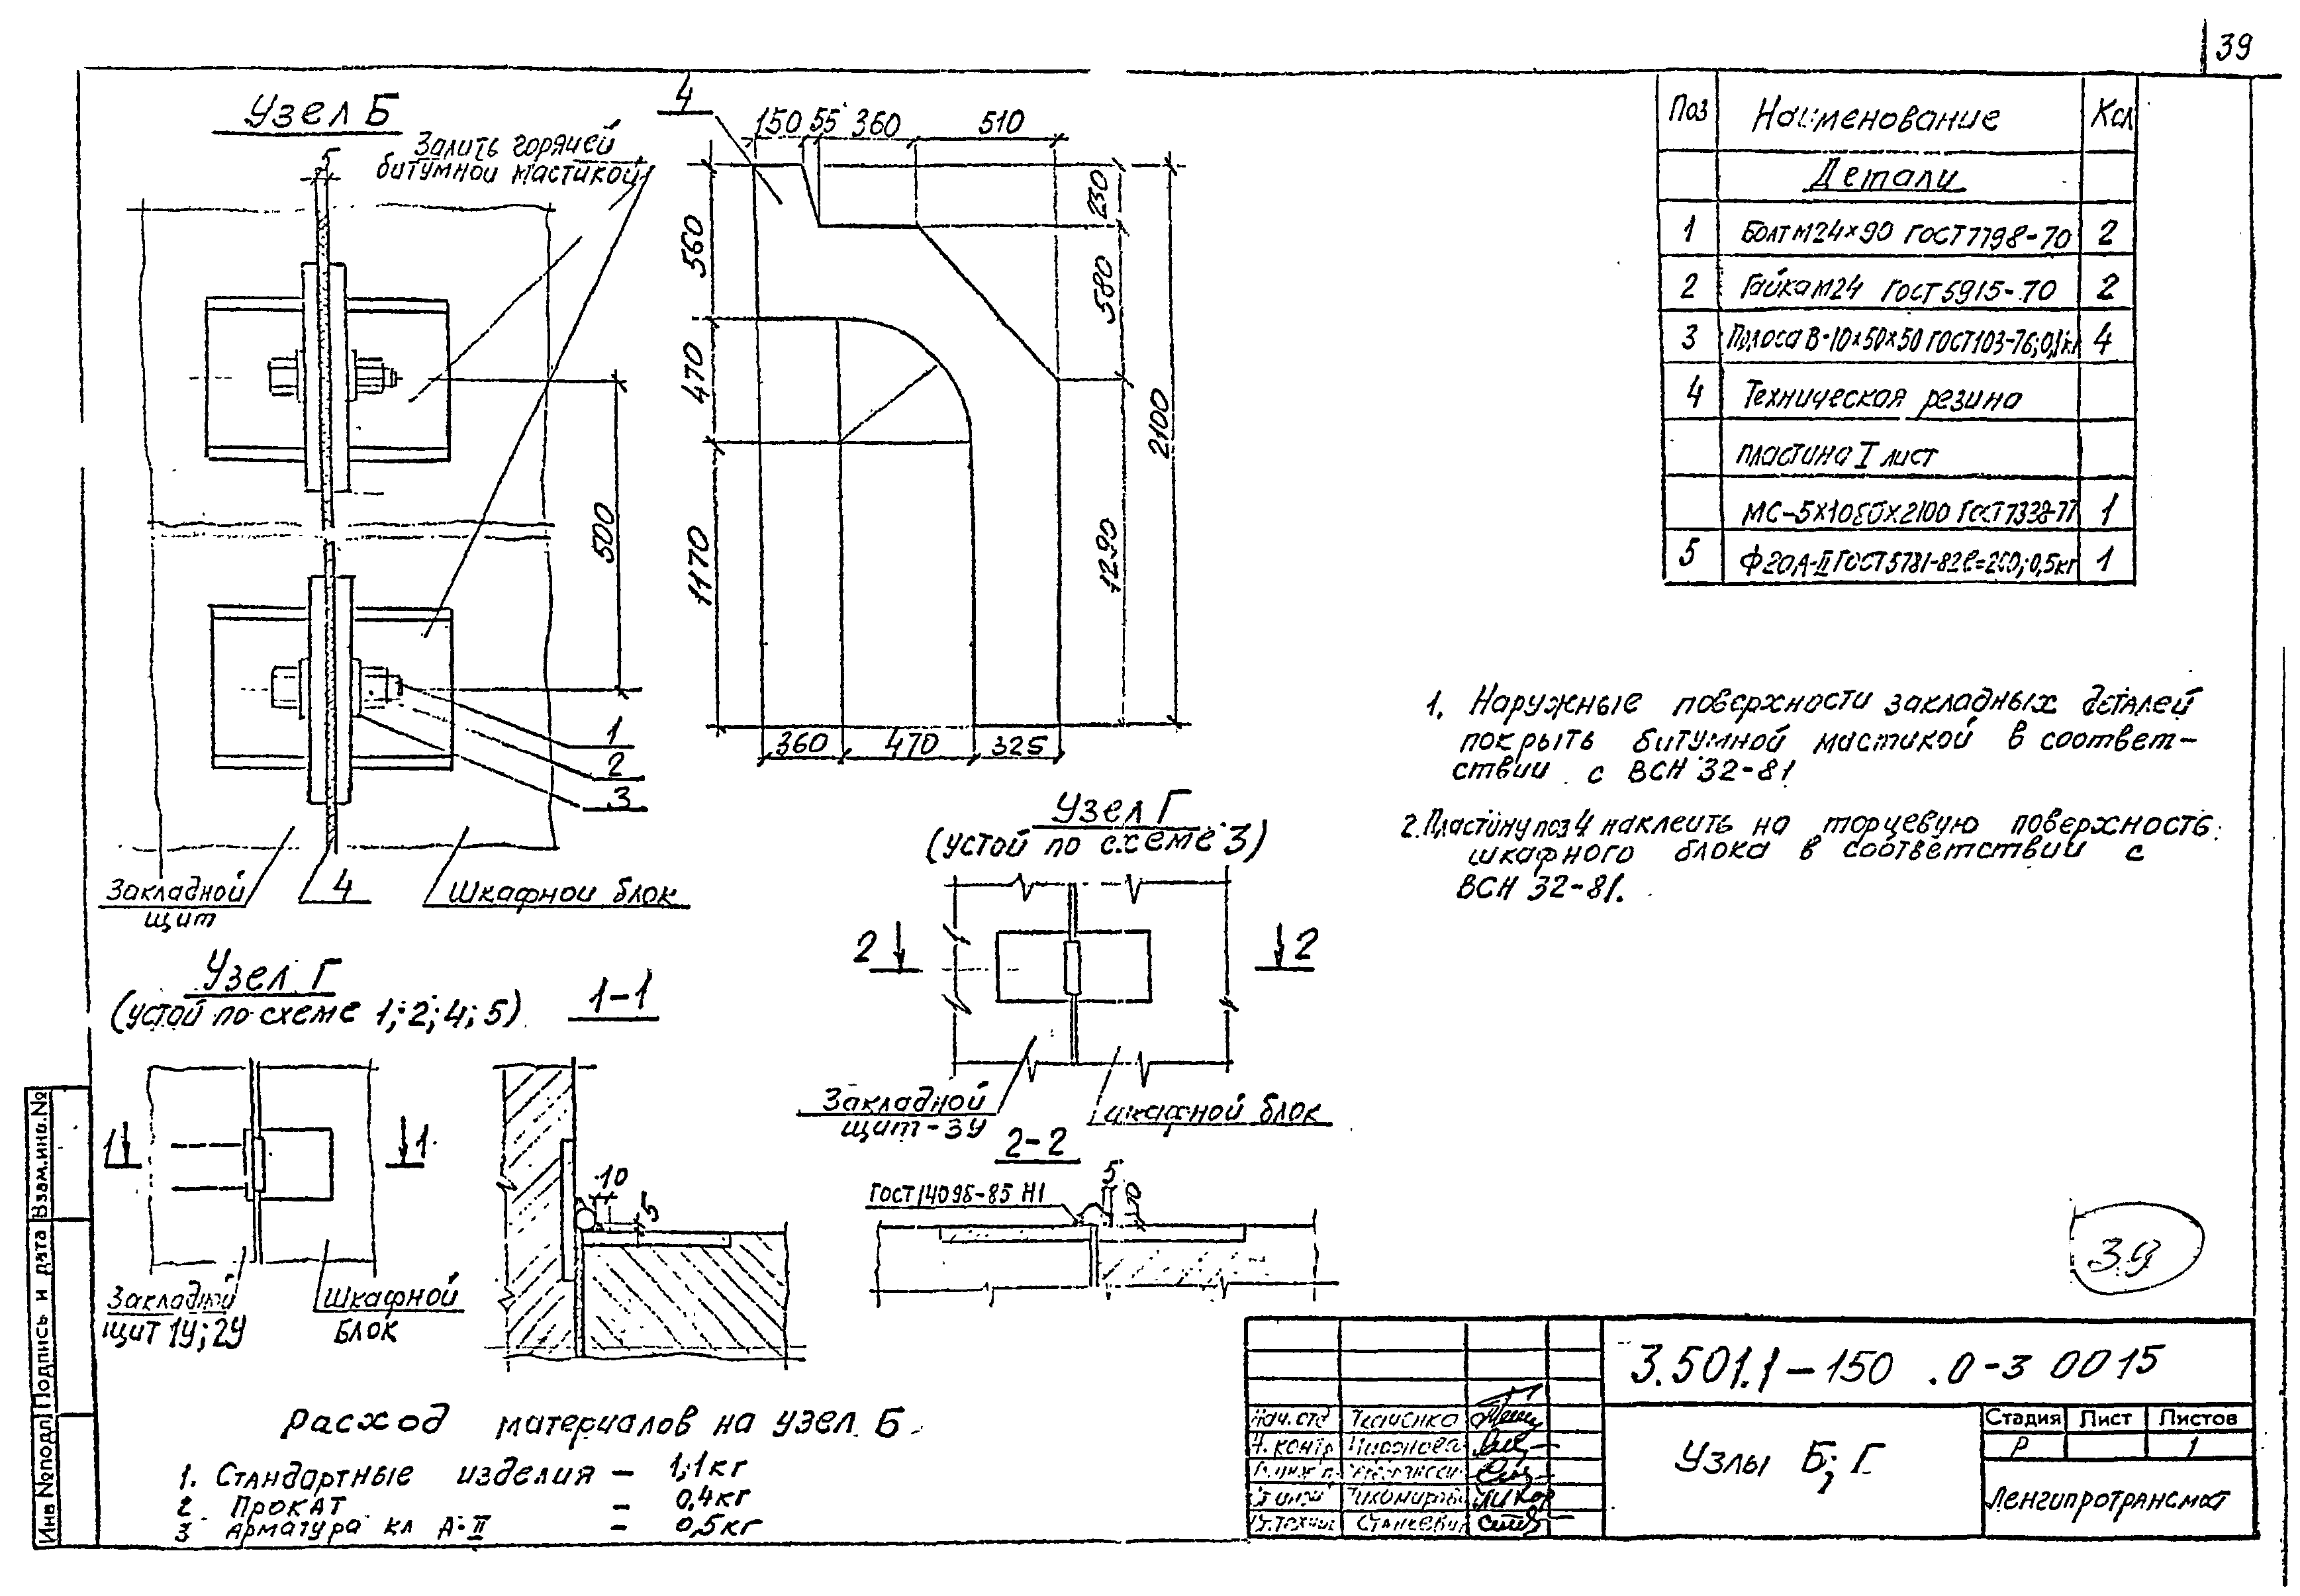 39
Узел Б
Залить горячей
битумной мастикой
5
500
1
2
3
Закладной
щит
4
Шкафной блок
4
150 55 360 510
560
470
1170
230
580
1290
2100
360 470 325
Поз Наименование Кол
Детали
1 Болт М24×90 ГОСТ 7798-70 2
2 Гайка М24 ГОСТ 5915-70 2
3 Полоса В-10×50×50 ГОСТ103-76; 0,1кг 4
4 Техническая резина
пластина I лист
МС-5×1080×2100 ГОСТ 7338-77 1
5 Ф20,А-II ГОСТ 5781-82 ℓ=200; 0,5кг 1
1. Наружные поверхности закладных деталей
покрыть битумной мастикой в соответ-
ствии с ВСН 32-81
2. Пластину поз 4 наклеить на торцевую поверхность
шкафного блока в соответствии с
ВСН 32-81.
Узел Г
(устой по схеме 3)
2 2
Закладной
щит-3У
шкафной блок
Узел Г
(устой по схеме 1; 2; 4; 5)
1 1
Закладной
щит 1У; 2У
Шкафной
блок
1-1
10
5
2-2
ГОСТ 14098-85 Н1
5
10
Расход материалов на узел Б
1. Стандартные изделия – 1,1кг
2 Прокат – 0,4кг
3 Арматура кл А-II – 0,5кг
39
3.501.1-150 .0-3 0015
Узлы Б; Г.
Стадия Лист Листов
Р 1
Ленгипротрансмост
Нач. отд Ткаченко
Н. контр Миронова
Ст. инж Тихомирова
Ст. техник Станкевич
Инв № подл Подпись и дата Взам. инв. №